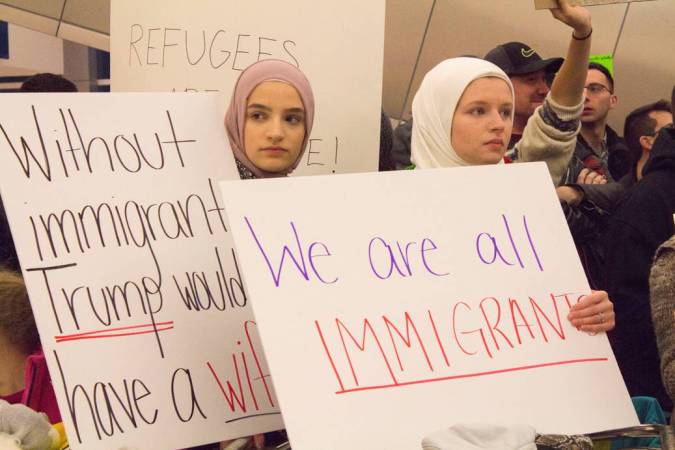 REFUGEES
Without
immigrant
Trump would
have a
We are all
IMMIGRANTS